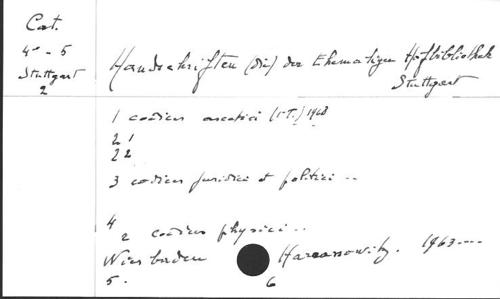 Cat.
4° - 5
Stuttgart
2
Handschriften (Die) der Ehemaligen Hofbibliothek
Stuttgart
1 codices ascetici (1 T.) 1968
2 1
2 2
3 codices juridici et politici ..
4
2 codices physici ..
Wiesbaden Harrassowitz. 1963----
5. 6